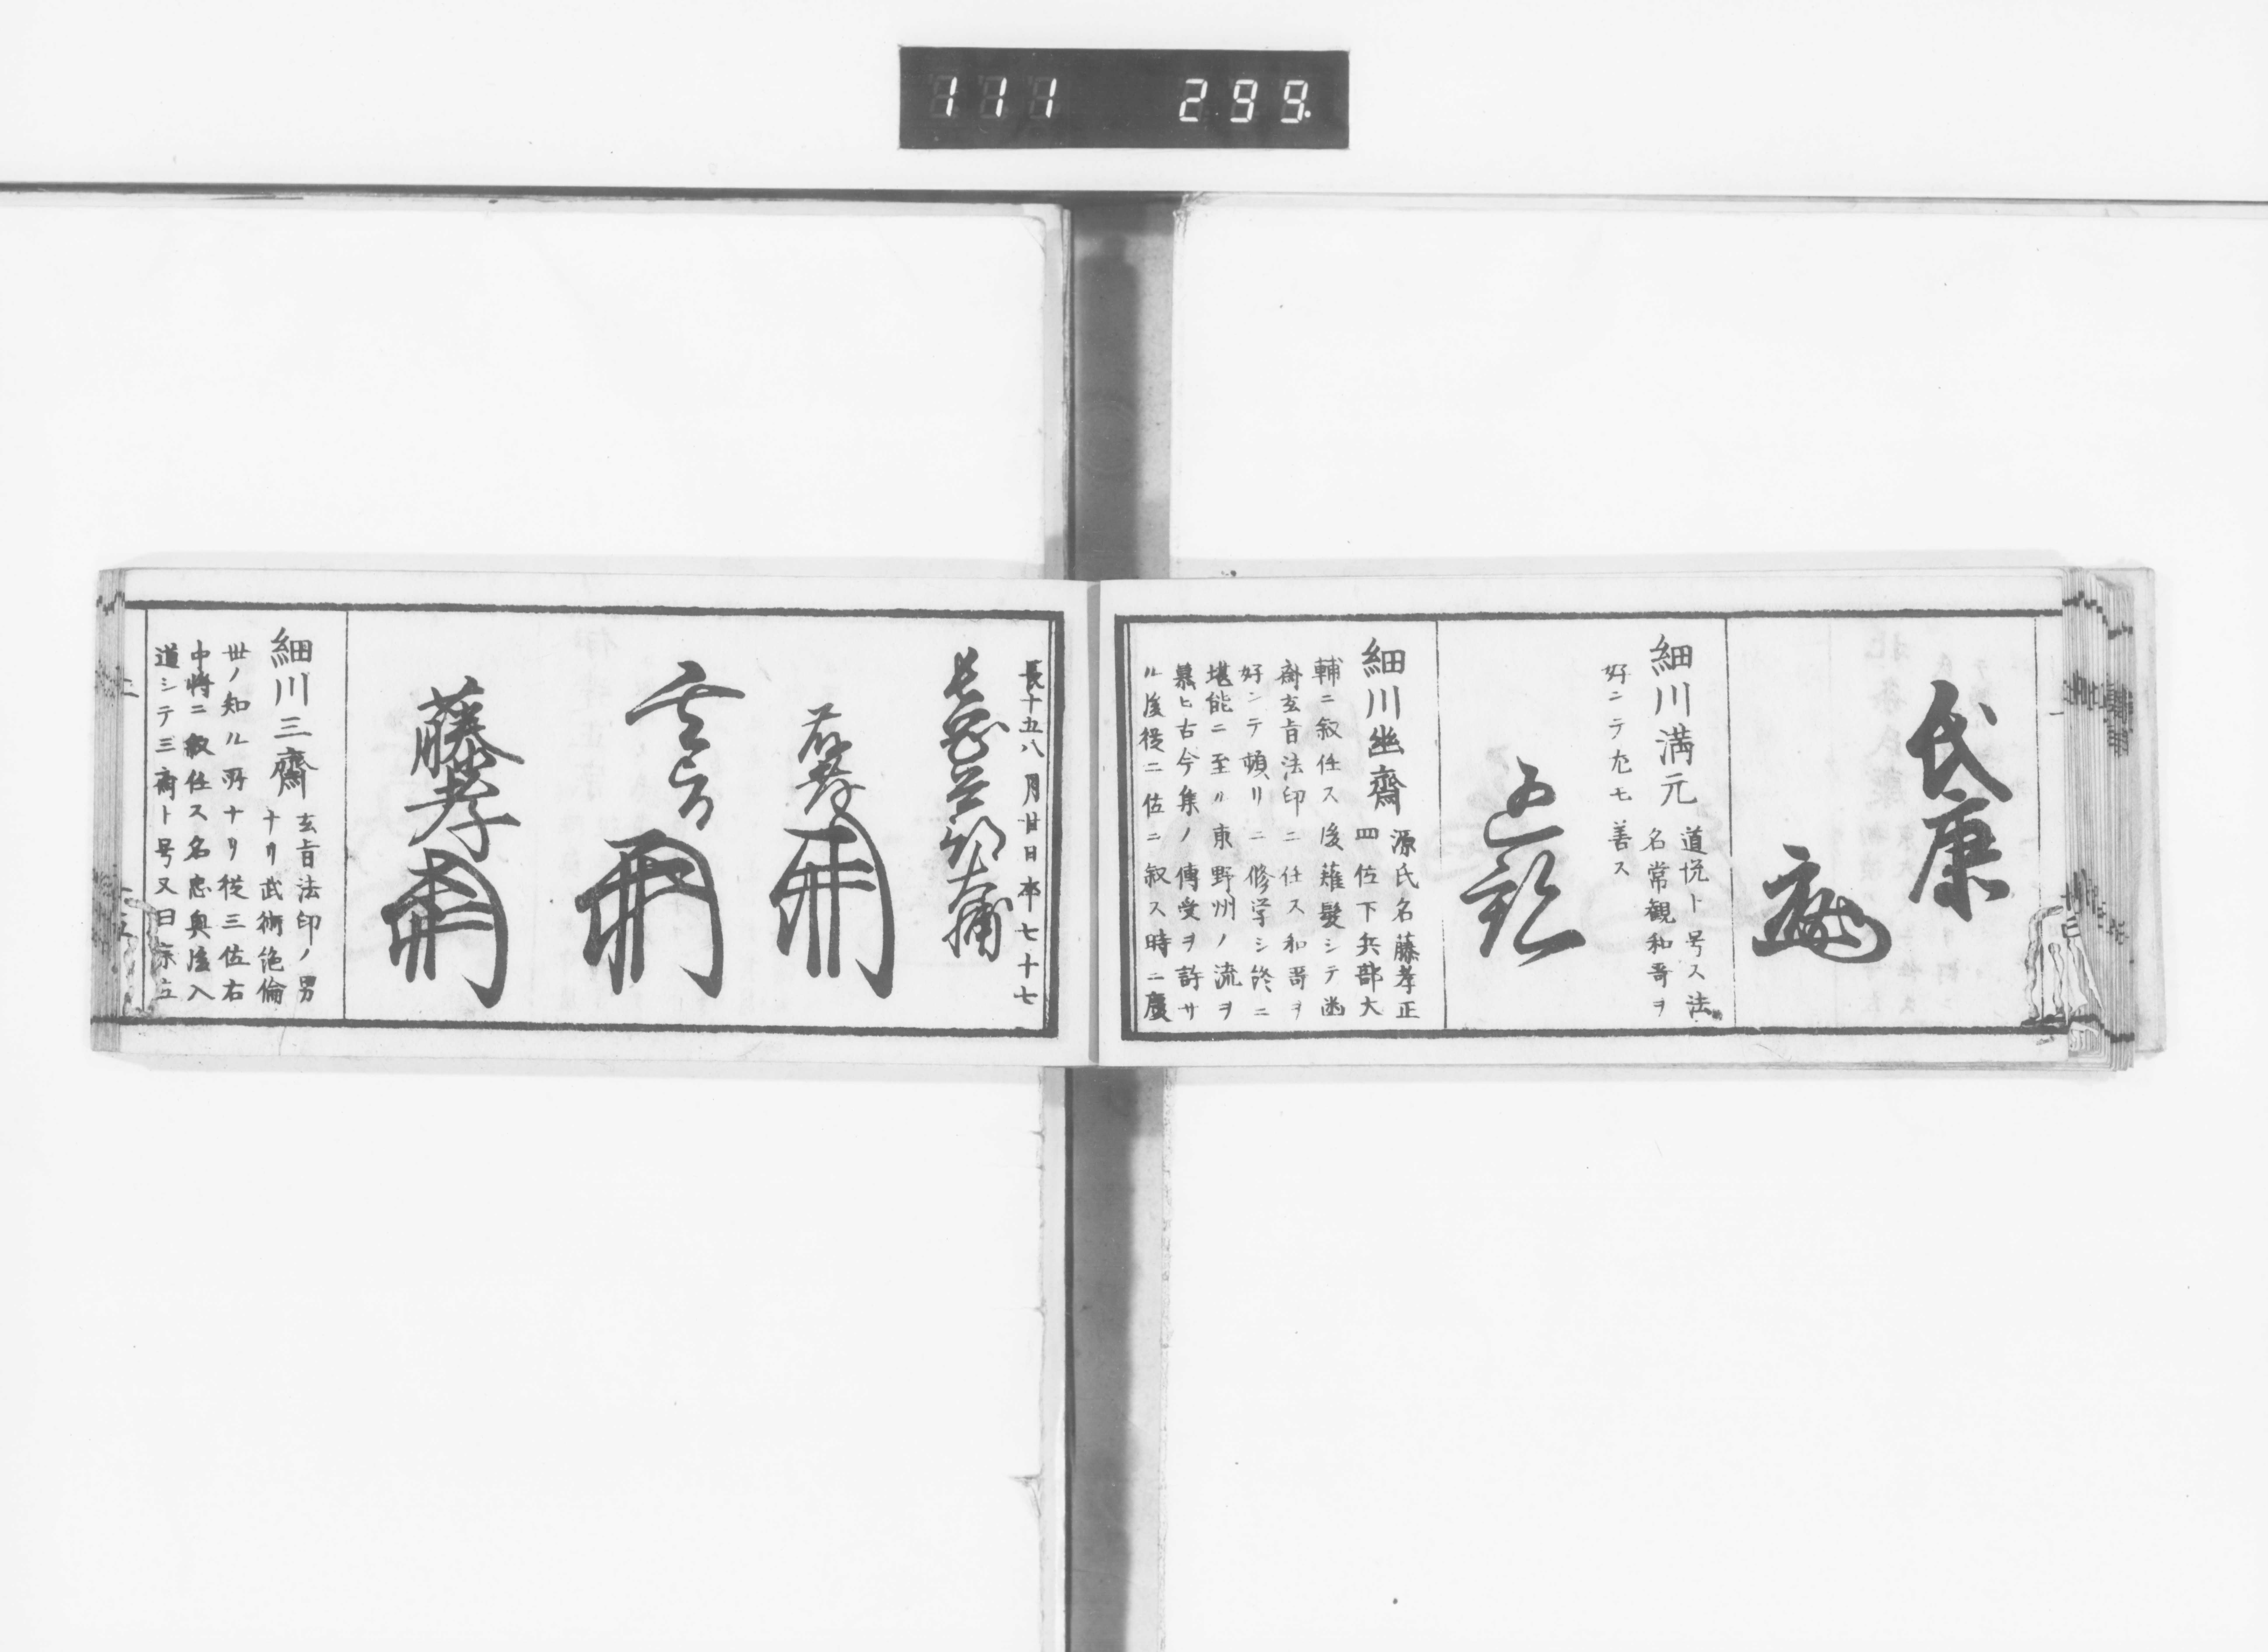 111 299.
氏康
細川満元
道悦ト号ス法
名常観和哥ヲ
好ンテ尤モ善ス
道歓
細川幽齋
源氏名藤孝正
四位下兵部大
輔ニ叙任ス後薙髮シテ幽
斎玄旨法印ニ任ス和哥ヲ
好ンテ頻リニ修学シ終ニ
堪能ニ至ル東野州ノ流ヲ
慕ヒ古今集ノ傳受ヲ許サ
ル後從二位ニ叙ス時ニ慶
長十五八月廿日卒七十七
藤孝
玄旨
藤孝
細川三齋
玄旨法印ノ男
ナリ武術絶倫
世ノ知ル所ナリ從三位右
中將ニ叙任ス名忠興後入
道シテ三斎ト号又曰宗立